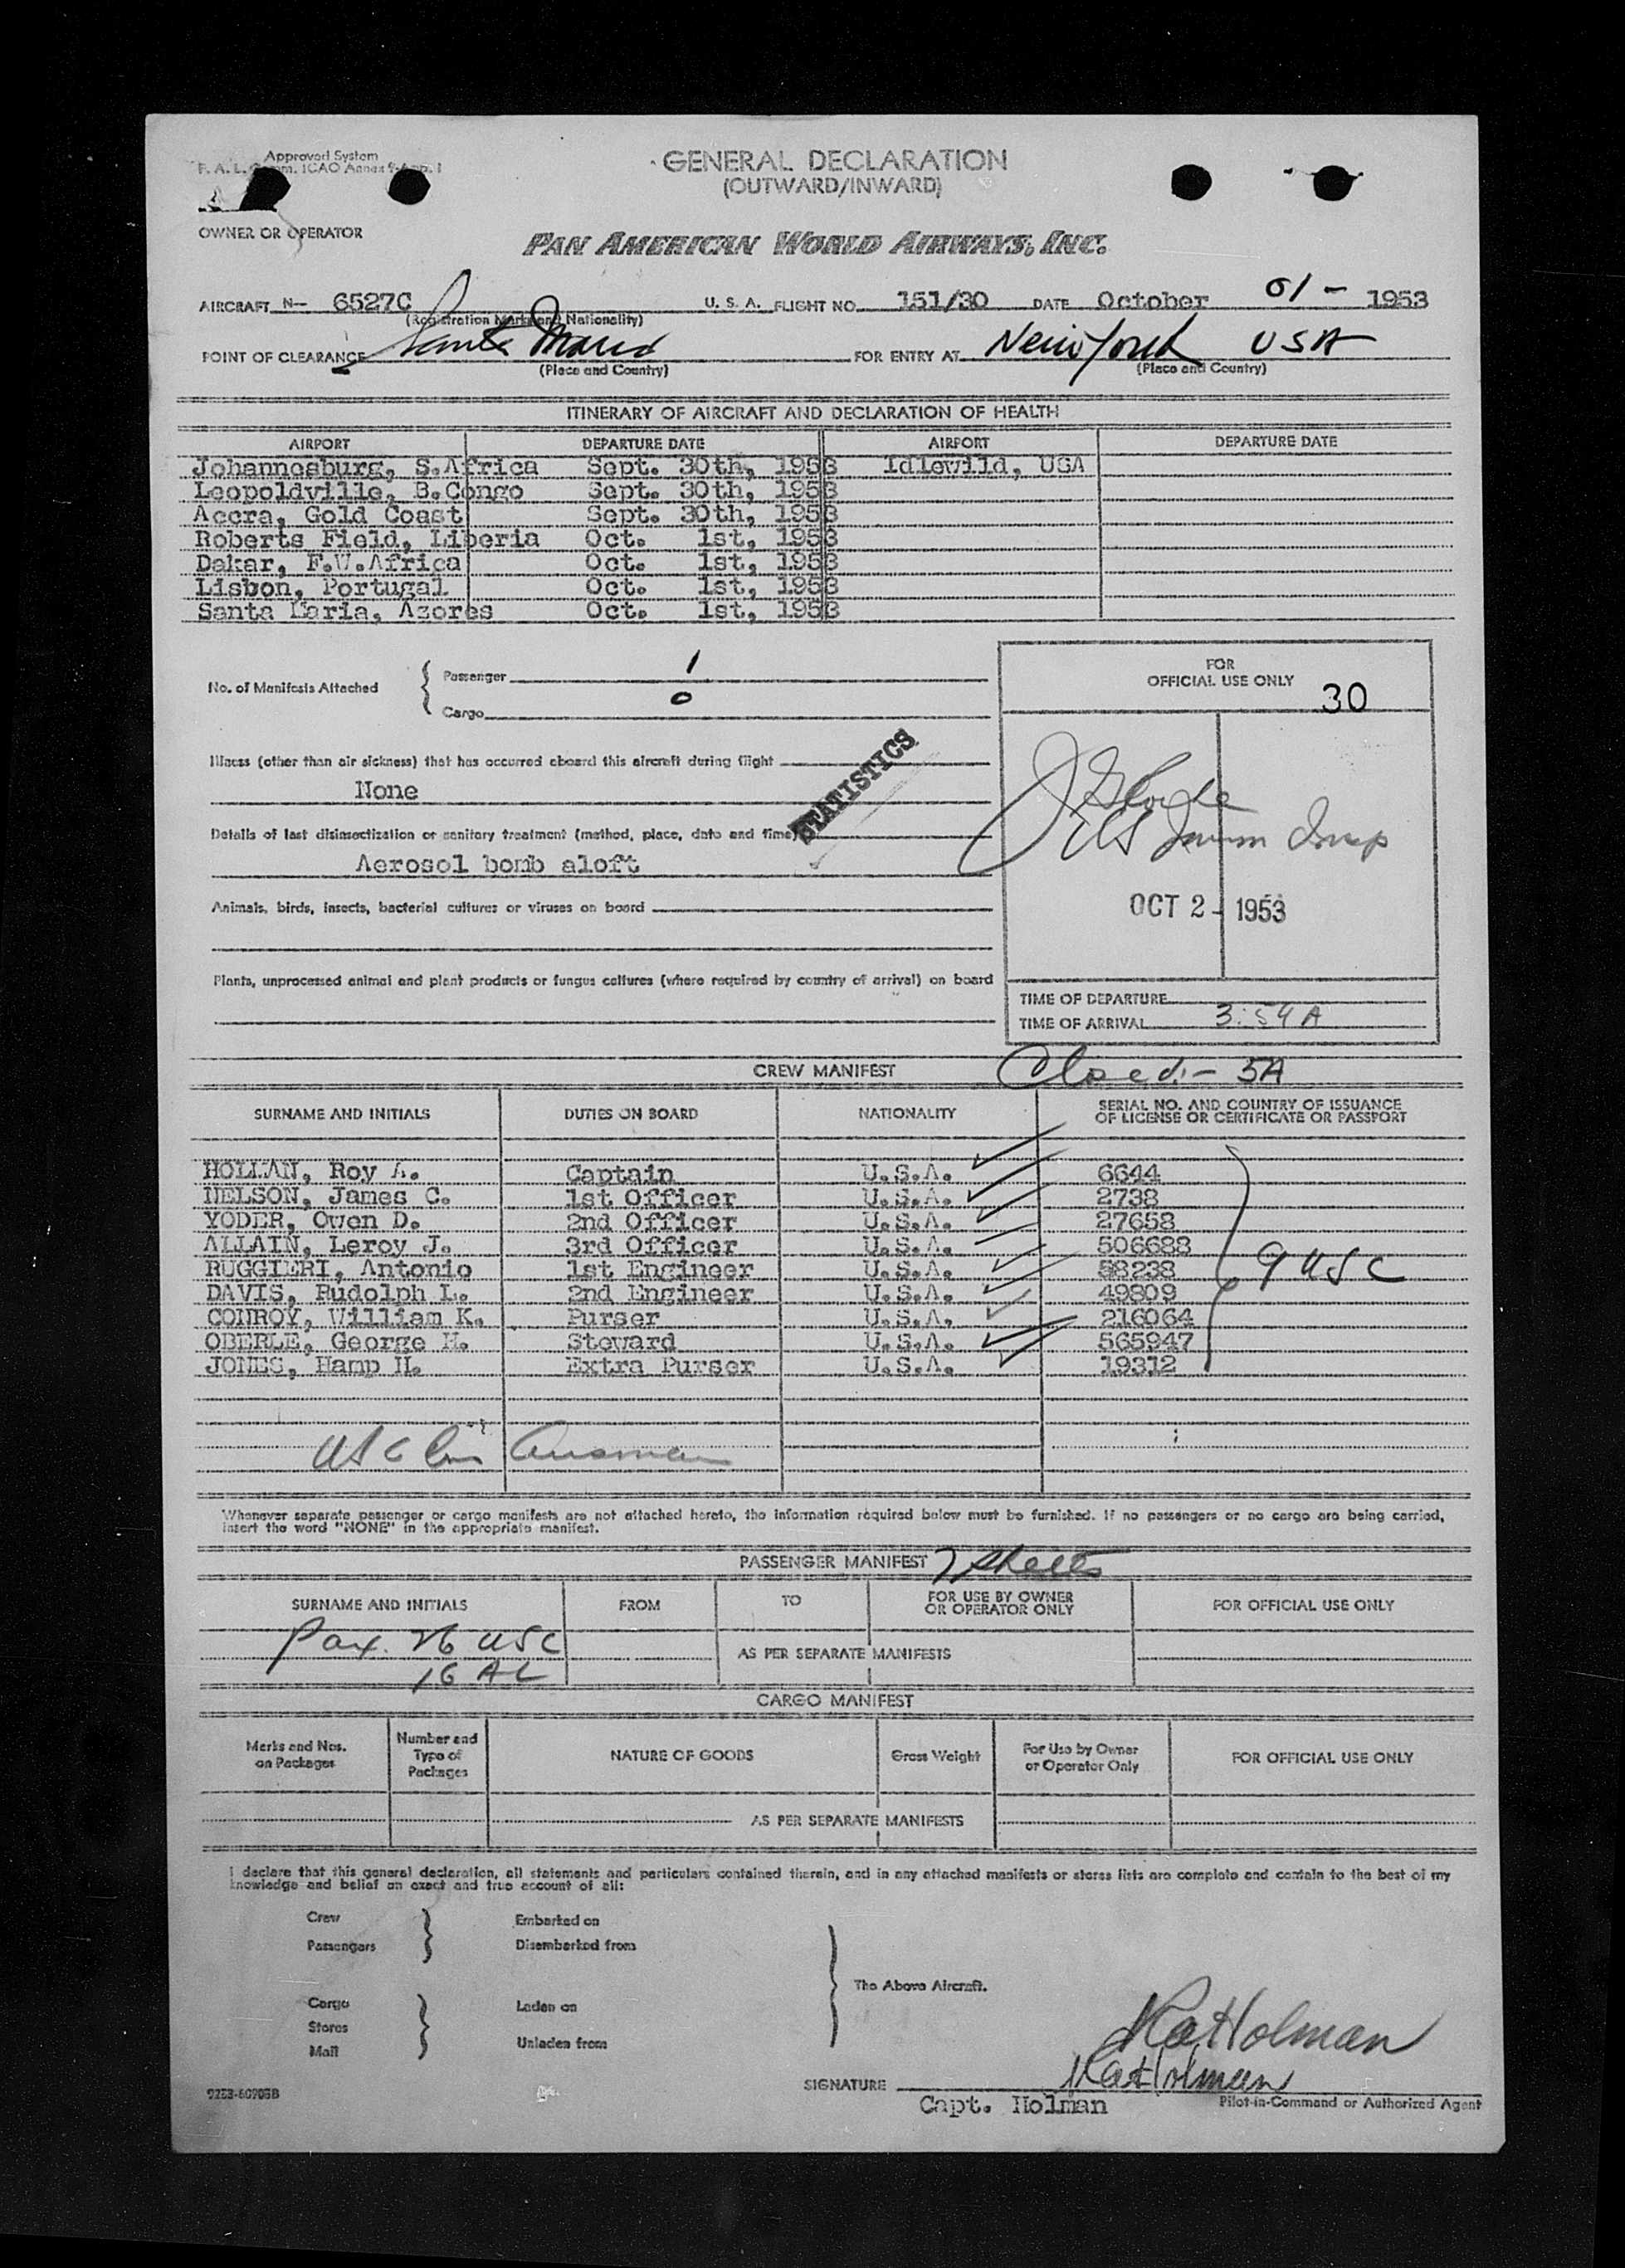 Approved System
GENERAL DECLARATION
(OUTWARD/INWARD)
OWNER OR OPERATOR
PAN AMERICAN WORLD AIRWAYS, INC.
AIRCRAFT N- 6527C U. S. A. FLIGHT NO. 151/30 DATE October 01- 1953
(Registration Marks and Nationality)
POINT OF CLEARANCE Santa Maria FOR ENTRY AT New York USA
(Place and Country) (Place and Country)
ITINERARY OF AIRCRAFT AND DECLARATION OF HEALTH
AIRPORT DEPARTURE DATE AIRPORT DEPARTURE DATE
Johannesburg, S.Africa Sept. 30th, 1953 Idlewild, USA
Leopoldville, B.Congo Sept. 30th, 1953
Accra, Gold Coast Sept. 30th, 1953
Roberts Field, Liberia Oct. 1st, 1953
Dakar, F.W.Africa Oct. 1st, 1953
Lisbon, Portugal Oct. 1st, 1953
Santa Maria, Azores Oct. 1st, 1953
FOR
OFFICIAL USE ONLY
30
No. of Manifests Attached { Passenger 1
Cargo 0
Illness (other than air sickness) that has occurred aboard this aircraft during flight
None
STATISTICS
Details of last disinsectization or sanitary treatment (method, place, date and time)
Aerosol bomb aloft
US Immn Insp
Animals, birds, insects, bacterial cultures or viruses on board
OCT 2 - 1953
Plants, unprocessed animal and plant products or fungus cultures (where required by country of arrival) on board
TIME OF DEPARTURE
TIME OF ARRIVAL 3:54 A
CREW MANIFEST Closed:- 5A
SURNAME AND INITIALS DUTIES ON BOARD NATIONALITY SERIAL NO. AND COUNTRY OF ISSUANCE
OF LICENSE OR CERTIFICATE OR PASSPORT
HOLMAN, Roy A. Captain U.S.A. 6644
NELSON, James C. 1st Officer U.S.A. 2738
YODER, Owen D. 2nd Officer U.S.A. 27658
ALLAIN, Leroy J. 3rd Officer U.S.A. 506688
RUGGIERI, Antonio 1st Engineer U.S.A. 58238 9 USC
DAVIS, Rudolph L. 2nd Engineer U.S.A. 49809
CONROY, William K. Purser U.S.A. 216064
OBERLE, George H. Steward U.S.A. 565947
JONES, Hamp H. Extra Purser U.S.A. 19312
Whenever separate passenger or cargo manifests are not attached hereto, the information required below must be furnished. If no passengers or no cargo are being carried,
insert the word "NONE" in the appropriate manifest.
PASSENGER MANIFEST 7 sheets
SURNAME AND INITIALS FROM TO FOR USE BY OWNER
OR OPERATOR ONLY FOR OFFICIAL USE ONLY
Pax. 26 USC
AS PER SEPARATE MANIFESTS
16 AL
CARGO MANIFEST
Marks and Nos.
on Packages Number and
Type of
Packages NATURE OF GOODS Gross Weight For Use by Owner
or Operator Only FOR OFFICIAL USE ONLY
AS PER SEPARATE MANIFESTS
I declare that this general declaration, all statements and particulars contained therein, and in any attached manifests or stores lists are complete and contain to the best of my
knowledge and belief an exact and true account of all:
Crew Embarked on
Passengers Disembarked from
The Above Aircraft.
Cargo Laden on
Stores
Mail Unladen from
RaHolman
RaHolman
SIGNATURE
Capt. Holman Pilot-in-Command or Authorized Agent